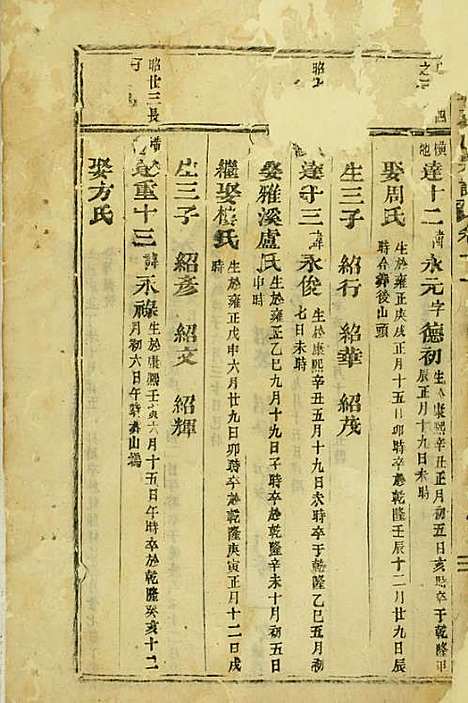 四橫
達十二 諱 永元 字 德初 生 康熙辛丑正月初五日亥時卒于乾隆甲辰正月十九日未時
娶周氏 生於雍正庚戌正月十五日卯時卒於乾隆壬辰十二月廿九日辰時合葬後山頭
生三子 紹行 紹華 紹茂
昭
達十三 諱 永俊 生於康熙辛丑五月十九日次時卒于乾隆乙巳五月初七日未時
娶雅溪盧氏 生於雍正乙巳九月十九日子時卒於乾隆辛未十月初五日申時
繼娶樓氏 生於雍正戊申六月廿九日卯時卒於乾隆庚寅正月十二日戌時
生三子 紹彥 紹文 紹輝
昭廿三長子
達重十三 諱 永祿 生於康熙壬寅六月十五日午時卒於乾隆癸亥十二月初六日午時葬山塢
娶方氏